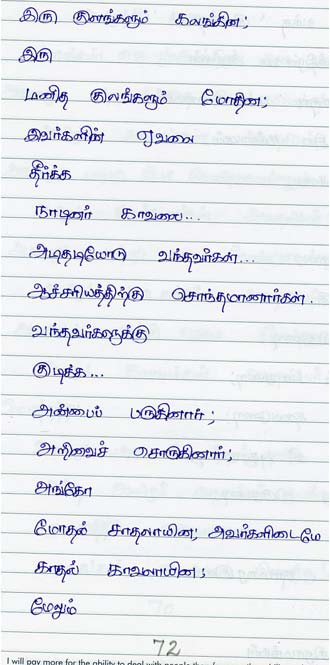 இரு குளங்களும் கலங்கின;
இரு
மனித குலங்களும் மோதின;
இவர்களின் ஏவலை
தீர்க்க
நாடினர் காவலை...
அடிதடியோடு வந்தவர்கள்...
ஆச்சரியத்திற்கு சொந்தமானார்கள்.
வந்தவர்களுக்கு
குடிக்க...
அன்பைப் பருகினார்;
அறிவைச் சொருகினார்;
அங்கே
மோதல் சாதலாயின; அவர்களிடைமே
காதல் காவலாயின;
மேலும்
72
I will pay more for the ability to deal with people